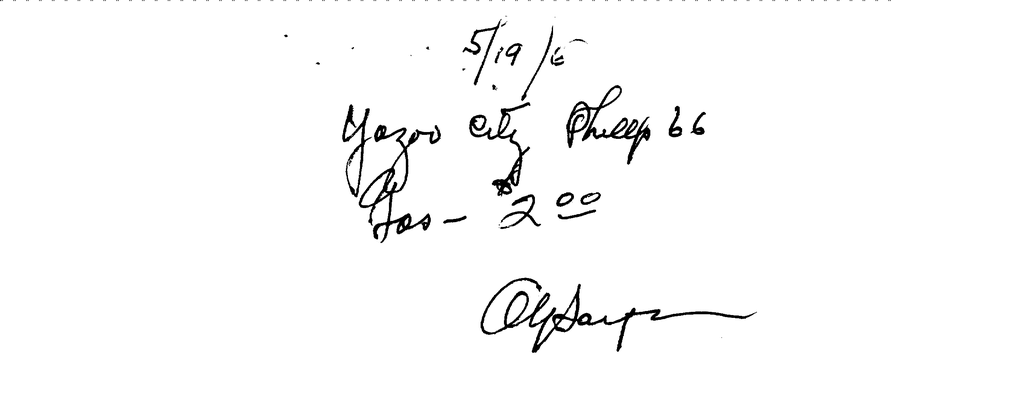 5/19/6
Yazoo City Phillip 66
Gas - $2 00